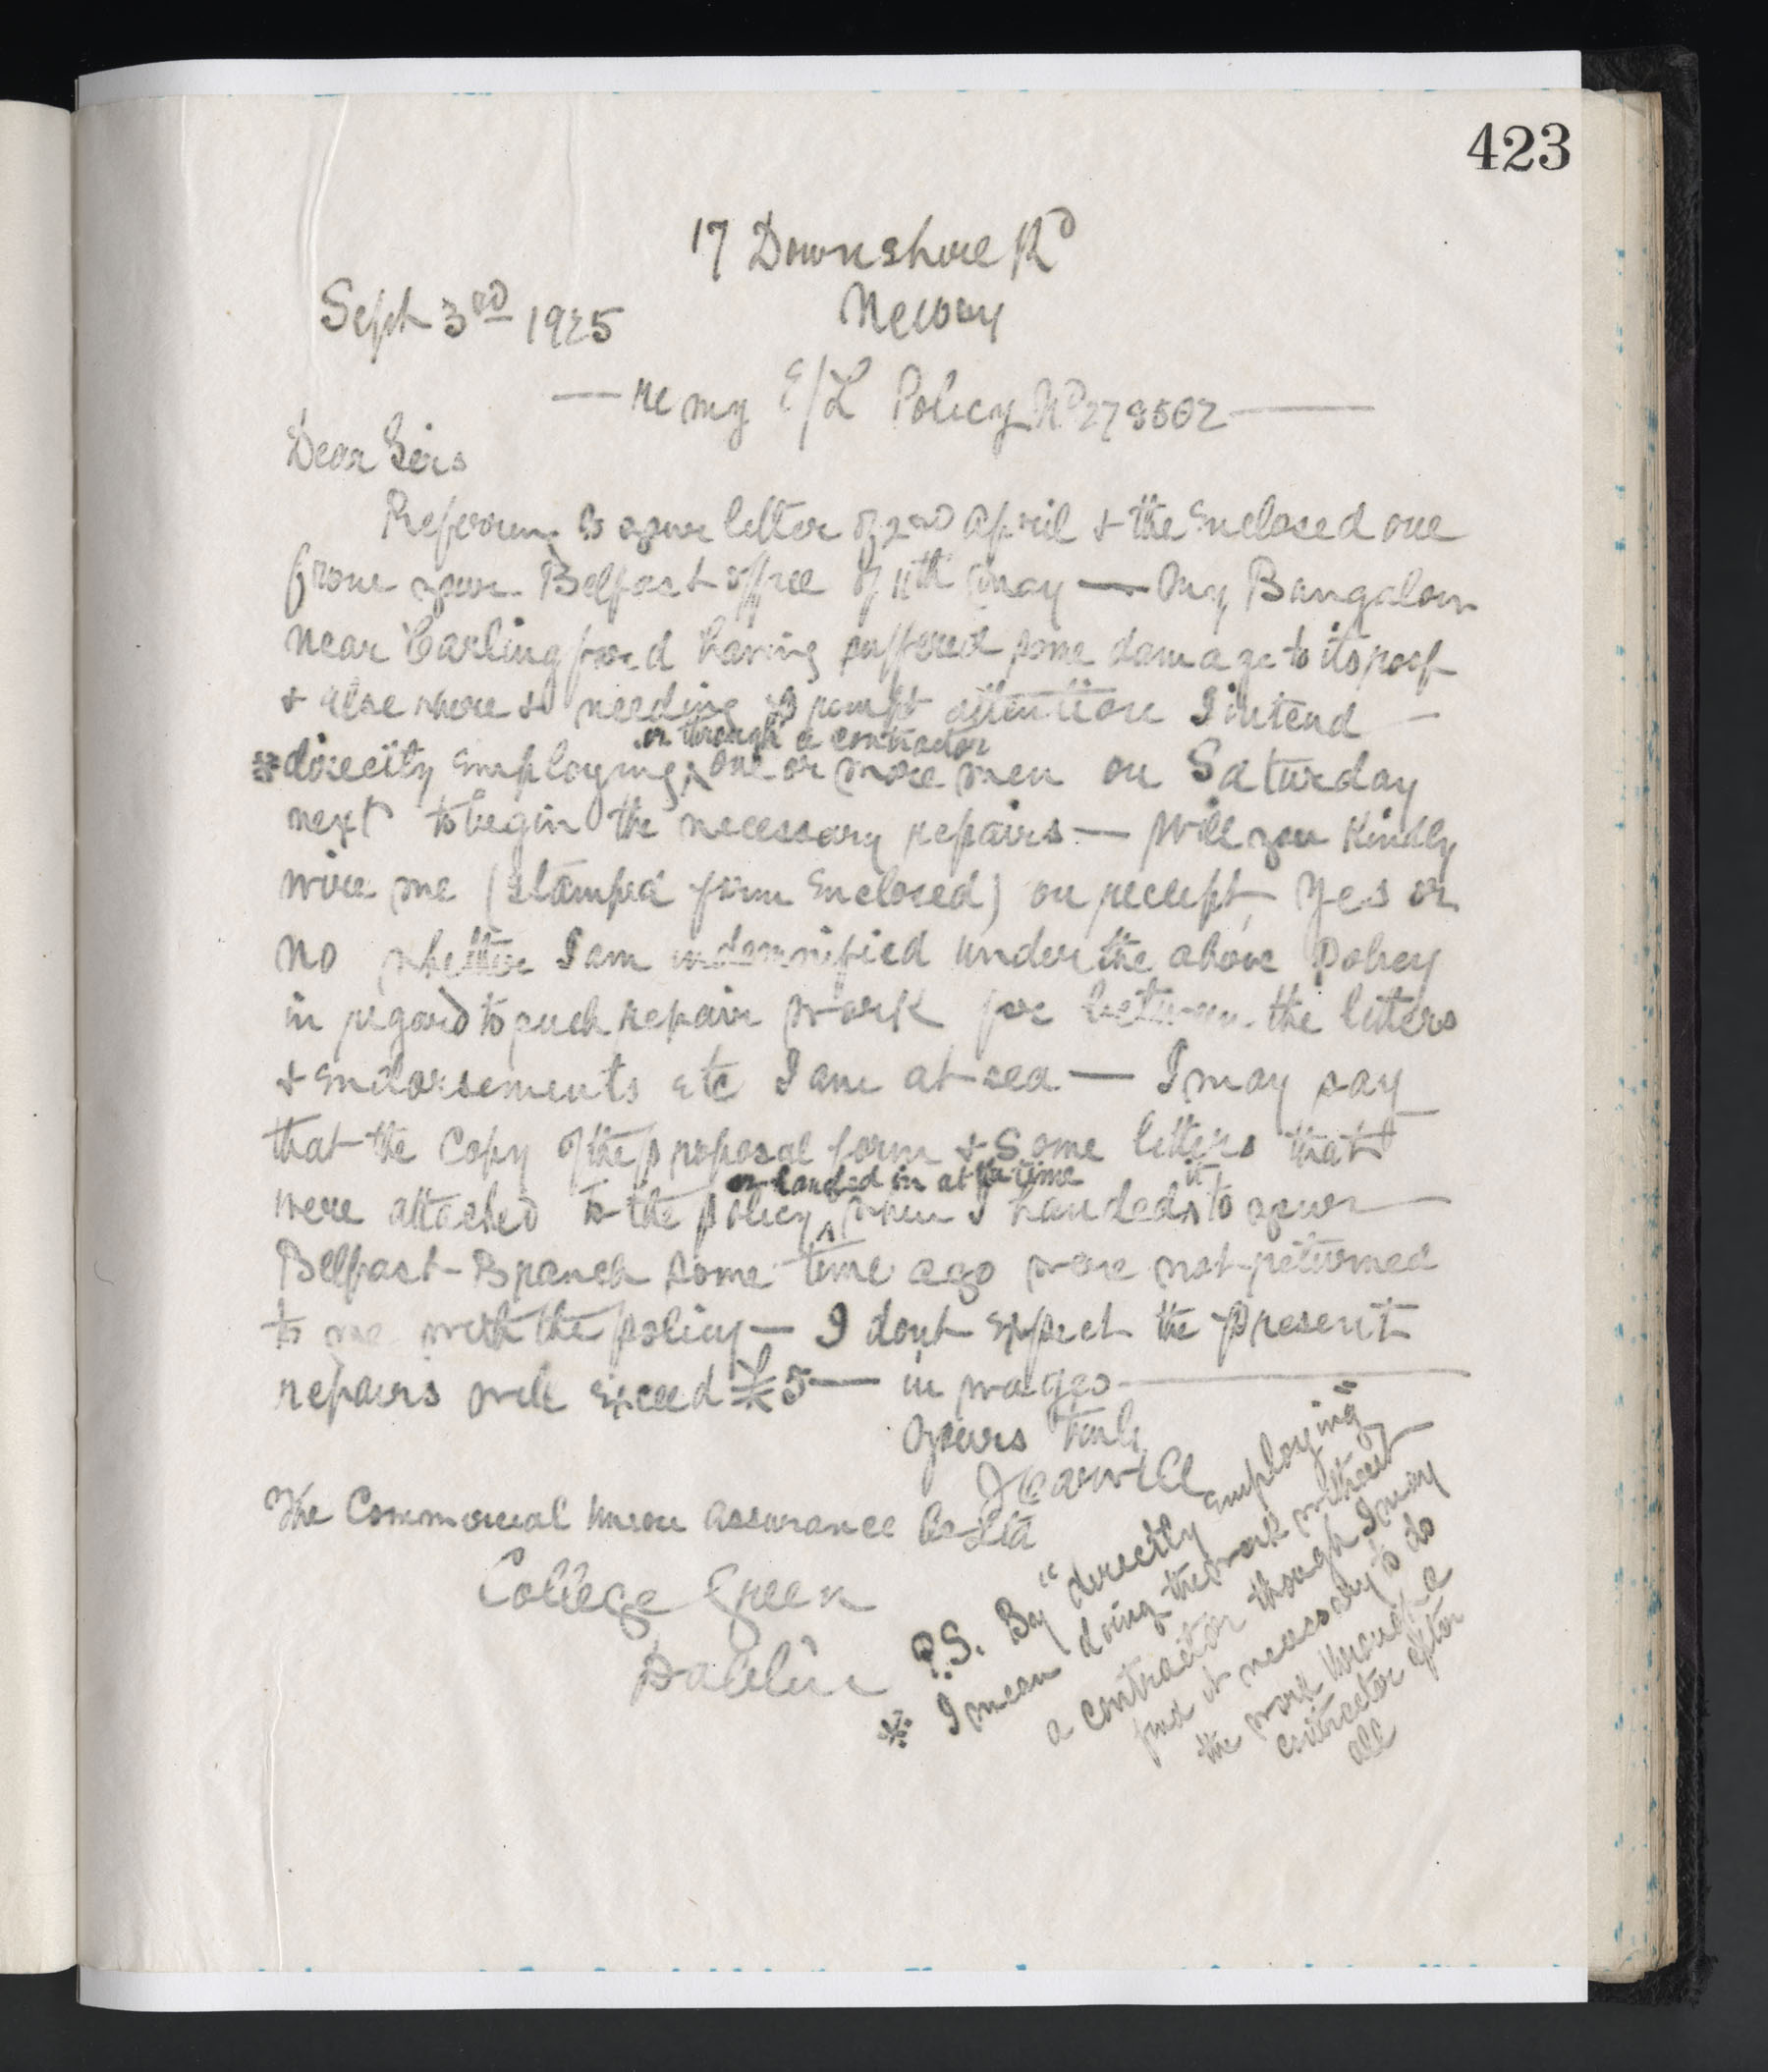 423
17 Downshire Rd
Sept 3rd 1925
Newry
— re my E/L Policy No 278502 —
Dear Sirs
Referring to your letter of 2nd April & the Enclosed one
from your Belfast office of 11th May — My Bungalow
near Carlingford having suffered some damage to its roof
& elsewhere & needing prompt attention I intend —
or through a contractor
* directly Employing one or more men on Saturday
next to begin the necessary repairs — Will you Kindly
wire me (stamped form Enclosed) on receipt Yes or
No whether I am indemnified under the above Policy
in regard to such repair work for between the letters
& Endorsements etc I am at sea — I may say
that the Copy of the proposal form & Some letters that
or handed in at the time it
were attached to the policy when I handed to your
Belfast Branch some time ago were not returned
to me with the policy — I dont Expect the present
repairs will Exceed £5 — in wages —
Yours Truly
The Commercial Union Assurance Co Ltd
College Green
Dublin
* P.S. By "directly Employing"
I mean doing the work without
a contractor though I may
find it necessary to do
the work through a
contractor after
all